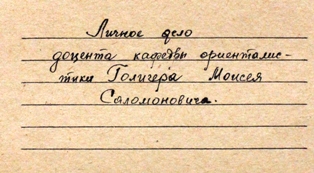 Личное дело
доцента кафедры ориенталис-
тики Голигера Моисея
Саломоновича.